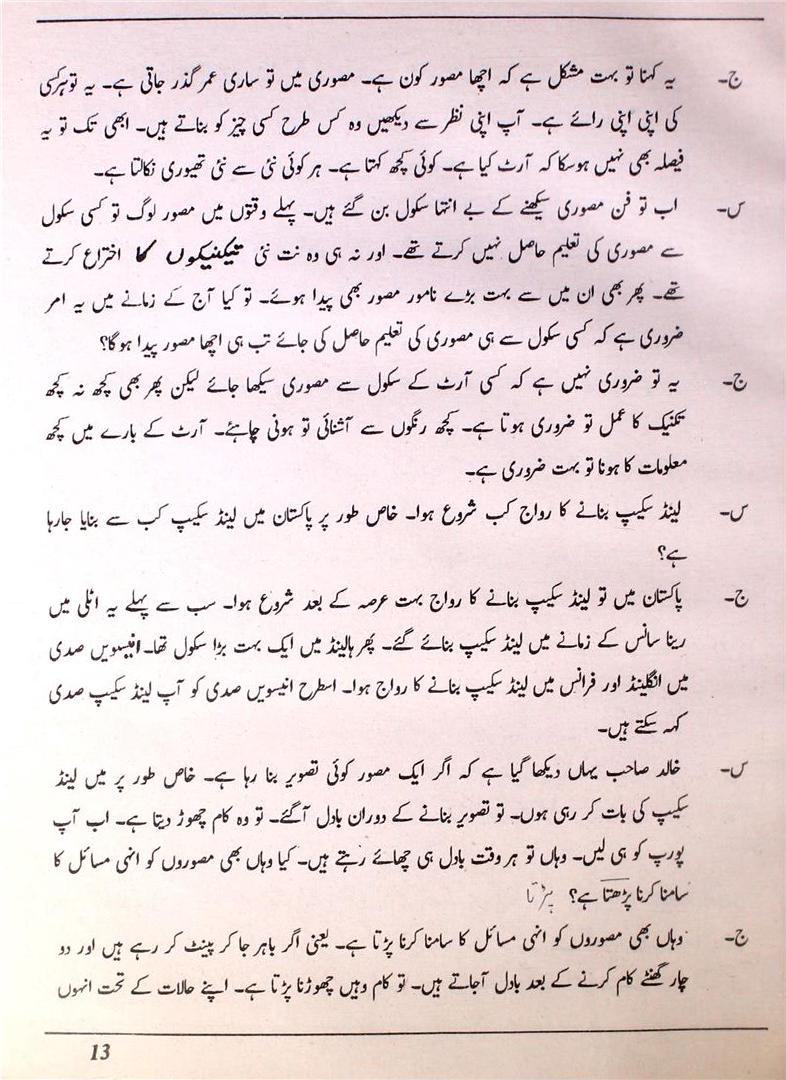 ج۔ یہ کہنا تو بہت مشکل ہے کہ اچھا مصور کون ہے۔ مصوری میں تو ساری عمر گذر جاتی ہے۔ یہ تو ہر کسی
کی اپنی اپنی رائے ہے۔ آپ اپنی نظر سے دیکھیں وہ کس طرح کسی چیز کو بناتے ہیں۔ ابھی تک تو یہ
فیصلہ بھی نہیں ہو سکا کہ آرٹ کیا ہے۔ کوئی کچھ کہتا ہے۔ ہر کوئی نئی سے نئی تھیوری نکالتا ہے۔
س۔ اب تو فن مصوری سیکھنے کے بے انتہا سکول بن گئے ہیں۔ پہلے وقتوں میں مصور لوگ تو کسی سکول
سے مصوری کی تعلیم حاصل نہیں کرتے تھے۔ اور نہ ہی وہ نت نئی تیکنیکوں کا اختراع کرتے
تھے۔ پھر بھی ان میں سے بہت بڑے نامور مصور بھی پیدا ہوئے۔ تو کیا آج کے زمانے میں یہ امر
ضروری ہے کہ کسی سکول سے ہی مصوری کی تعلیم حاصل کی جائے تب ہی اچھا مصور پیدا ہو گا؟
ج۔ یہ تو ضروری نہیں ہے کہ کسی آرٹ کے سکول سے مصوری سیکھا جائے لیکن پھر بھی کچھ نہ کچھ
تکنیک کا عمل تو ضروری ہوتا ہے۔ کچھ رنگوں سے آشنائی تو ہونی چاہئے۔ آرٹ کے بارے میں کچھ
معلومات کا ہونا تو بہت ضروری ہے۔
س۔ لینڈ سکیپ بنانے کا رواج کب شروع ہوا۔ خاص طور پر پاکستان میں لینڈ سکیپ کب سے بنایا جارہا
ہے؟
ج۔ پاکستان میں تو لینڈ سکیپ بنانے کا رواج بہت عرصہ کے بعد شروع ہوا۔ سب سے پہلے یہ اٹلی میں
رینا سانس کے زمانے میں لینڈ سکیپ بنائے گئے۔ پھر ہالینڈ میں ایک بہت بڑا سکول تھا۔ انیسویں صدی
میں انگلینڈ اور فرانس میں لینڈ سکیپ بنانے کا رواج ہوا۔ اسطرح انیسویں صدی کو آپ لینڈ سکیپ صدی
کہہ سکتے ہیں۔
س۔ خالد صاحب یہاں دیکھا گیا ہے کہ اگر ایک مصور کوئی تصویر بنا رہا ہے۔ خاص طور پر میں لینڈ
سکیپ کی بات کر رہی ہوں۔ تو تصویر بنانے کے دوران بادل آگئے۔ تو وہ کام چھوڑ دیتا ہے۔ اب آپ
یورپ کو ہی لیں۔ وہاں تو ہر وقت بادل ہی چھائے رہتے ہیں۔ کیا وہاں بھی مصوروں کو انہی مسائل کا
سامنا کرنا پڑھتا ہے؟ پڑتا
ج۔ وہاں بھی مصوروں کو انہی مسائل کا سامنا کرنا پڑتا ہے۔ یعنی اگر باہر جا کر پینٹ کر رہے ہیں اور دو
چار گھنٹے کام کرنے کے بعد بادل آجاتے ہیں۔ تو کام وہیں چھوڑنا پڑتا ہے۔ اپنے حالات کے تحت انہوں
13